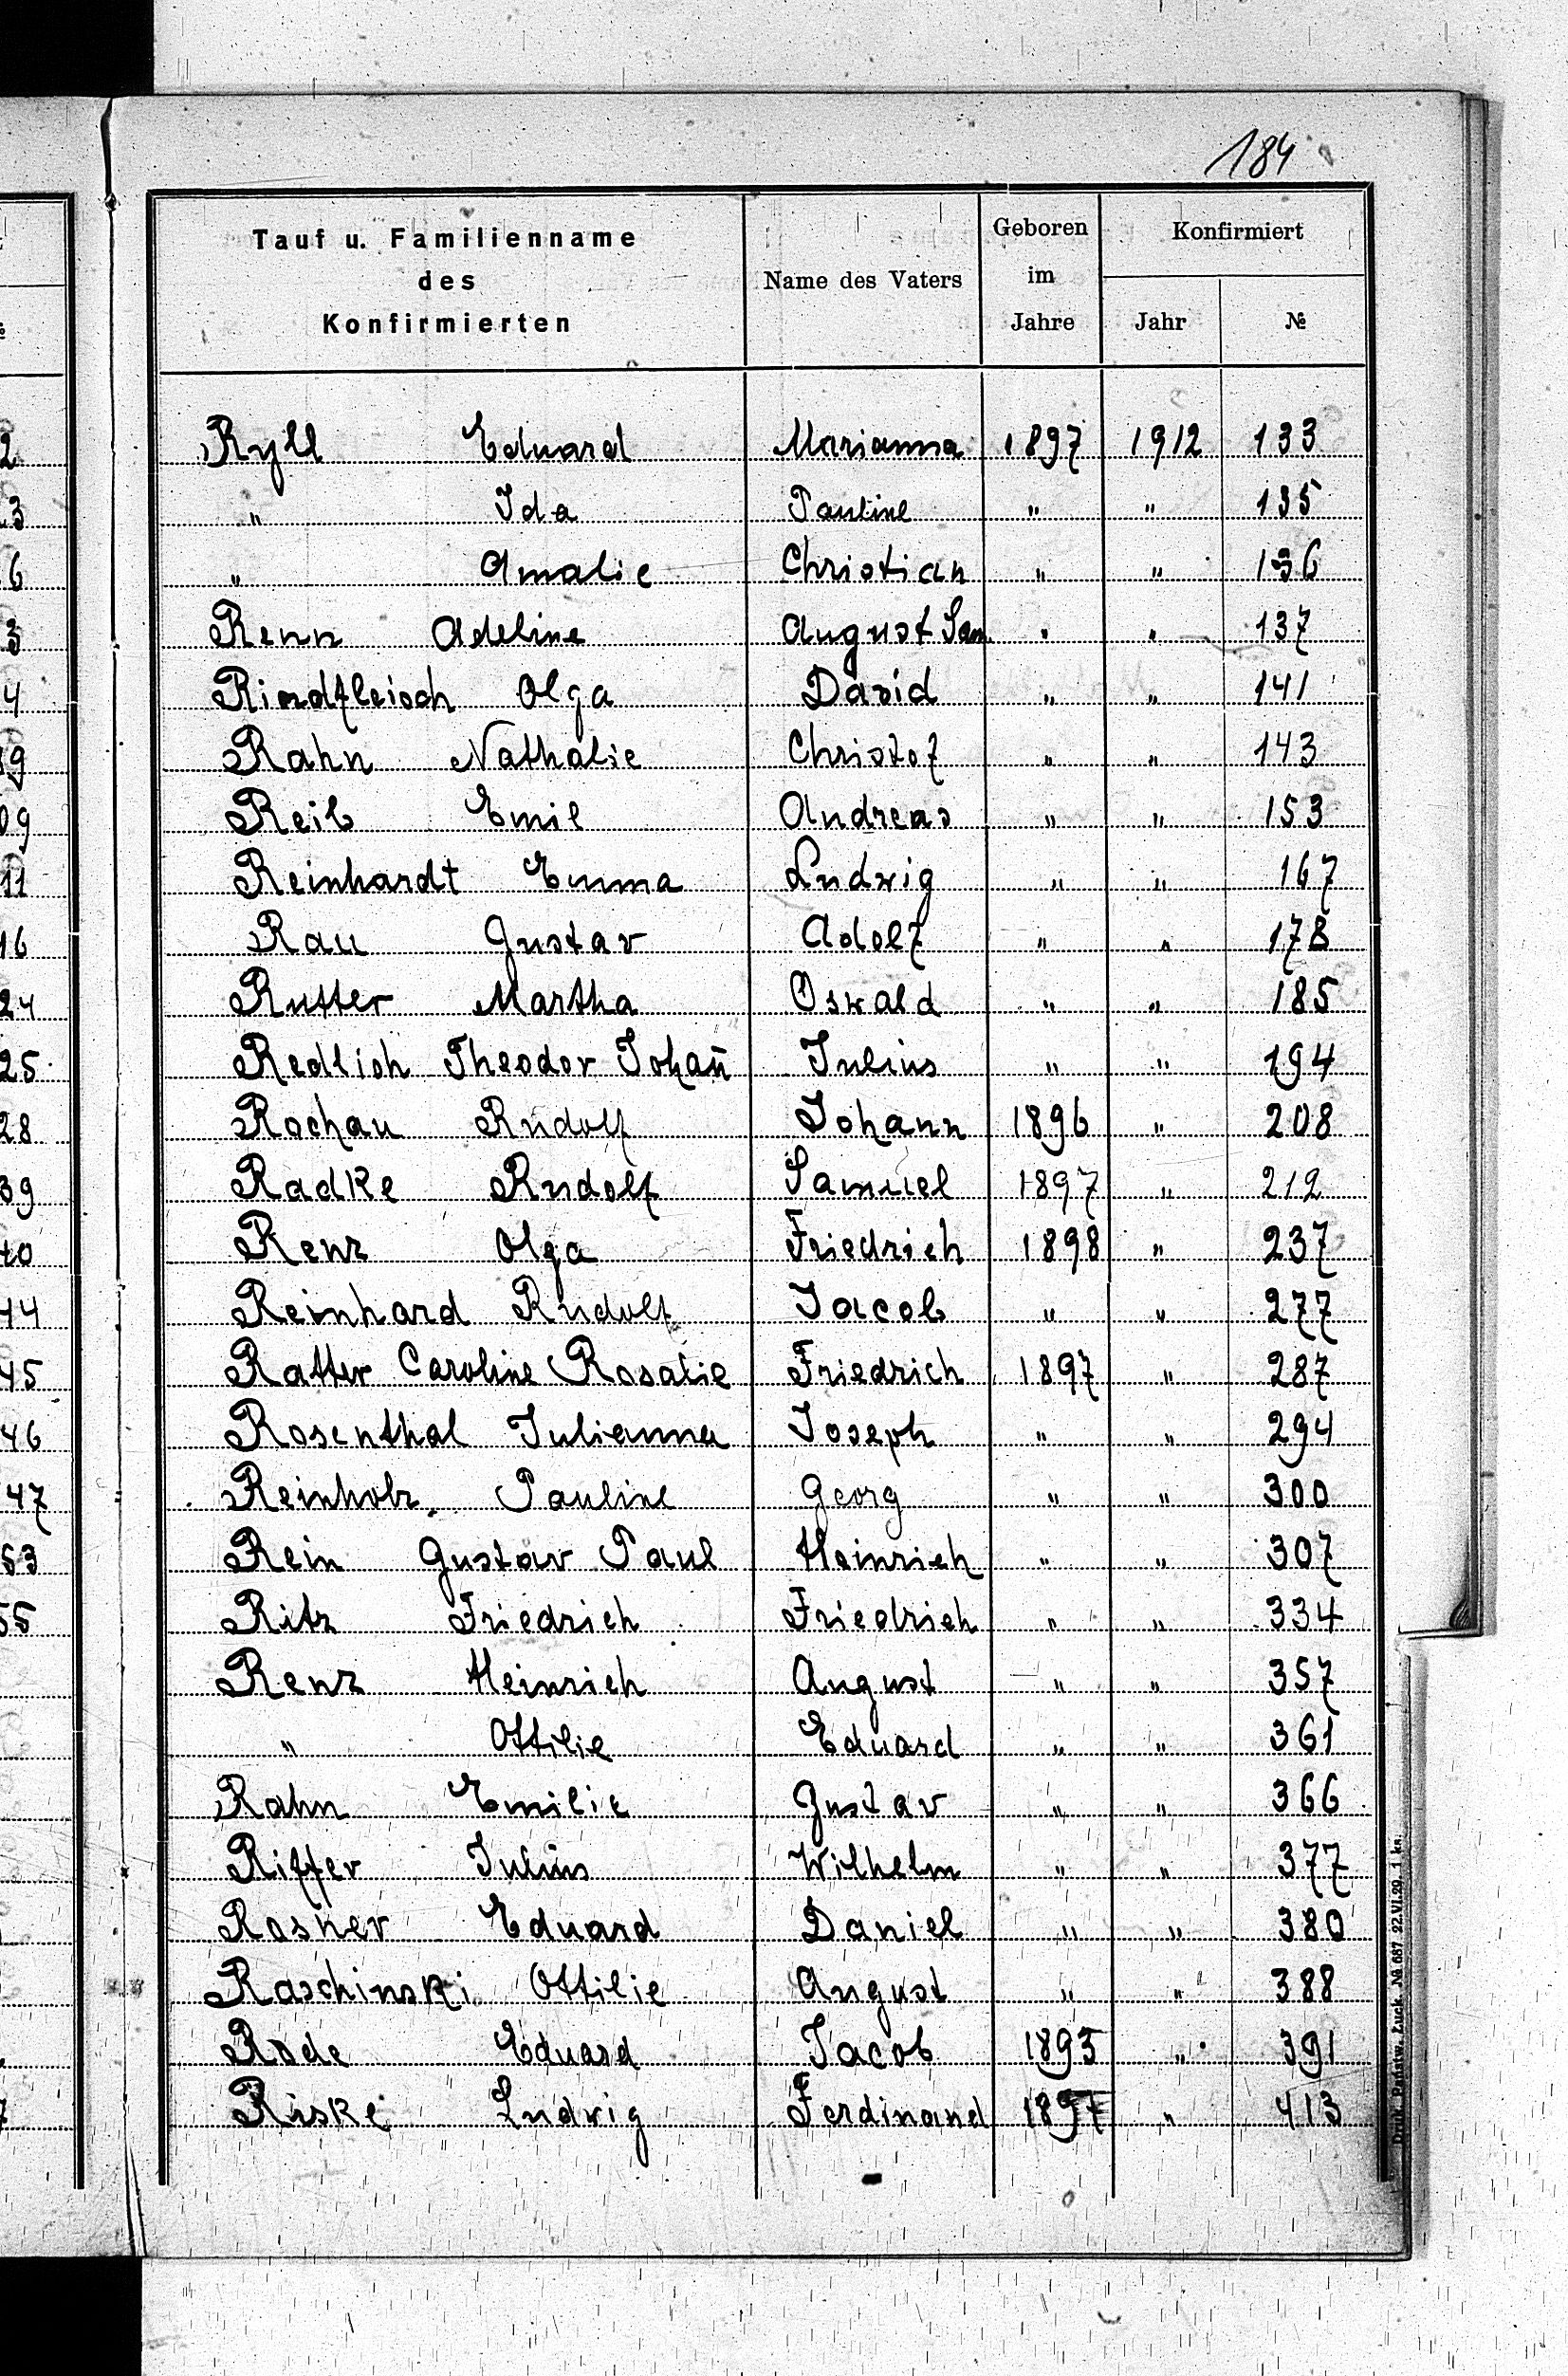 184
Tauf u. Familienname des Konfirmierten | Name des Vaters | Geboren im Jahre | Konfirmiert Jahr | №
Ryll Eduard Marianna 1897 1912 133
" Ida Pauline " " 135
" Amalie Christian " " 136
Renn Adeline August Sam " " 137
Rindfleisch Olga David " " 141
Rahn Nathalie Christof " " 143
Reib Emil Andreas " " 153
Reinhardt Emma Ludwig " " 167
Rau Gustav Adolf " " 178
Rutter Martha Oswald " " 185
Redlich Theodor Johan̄ Julius " " 194
Rochau Rudolf Johann 1896 " 208
Radke Rudolf Samuel 1897 " 212
Renz Olga Friedrich 1898 " 237
Reinhard Rudolf Jacob " " 277
Ratter Caroline Rosalie Friedrich 1897 " 287
Rosenthal Julianna Joseph " " 294
Reinholz Pauline Georg " " 300
Rein Gustav Paul Heinrich " " 307
Ritz Friedrich Friedrich " " 334
Renz Heinrich August " " 357
" Ottilie Eduard " " 361
Rahn Emilie Gustav " " 366
Riffer Julius Wilhelm " " 377
Rosner Eduard Daniel " " 380
Raschinski Ottilie August " " 388
Rode Eduard Jacob 1895 " 391
Riske Ludwig Ferdinand 1897 " 413
Druk. Państw. Łuck. № 687 22.VI.29. 1 kr.